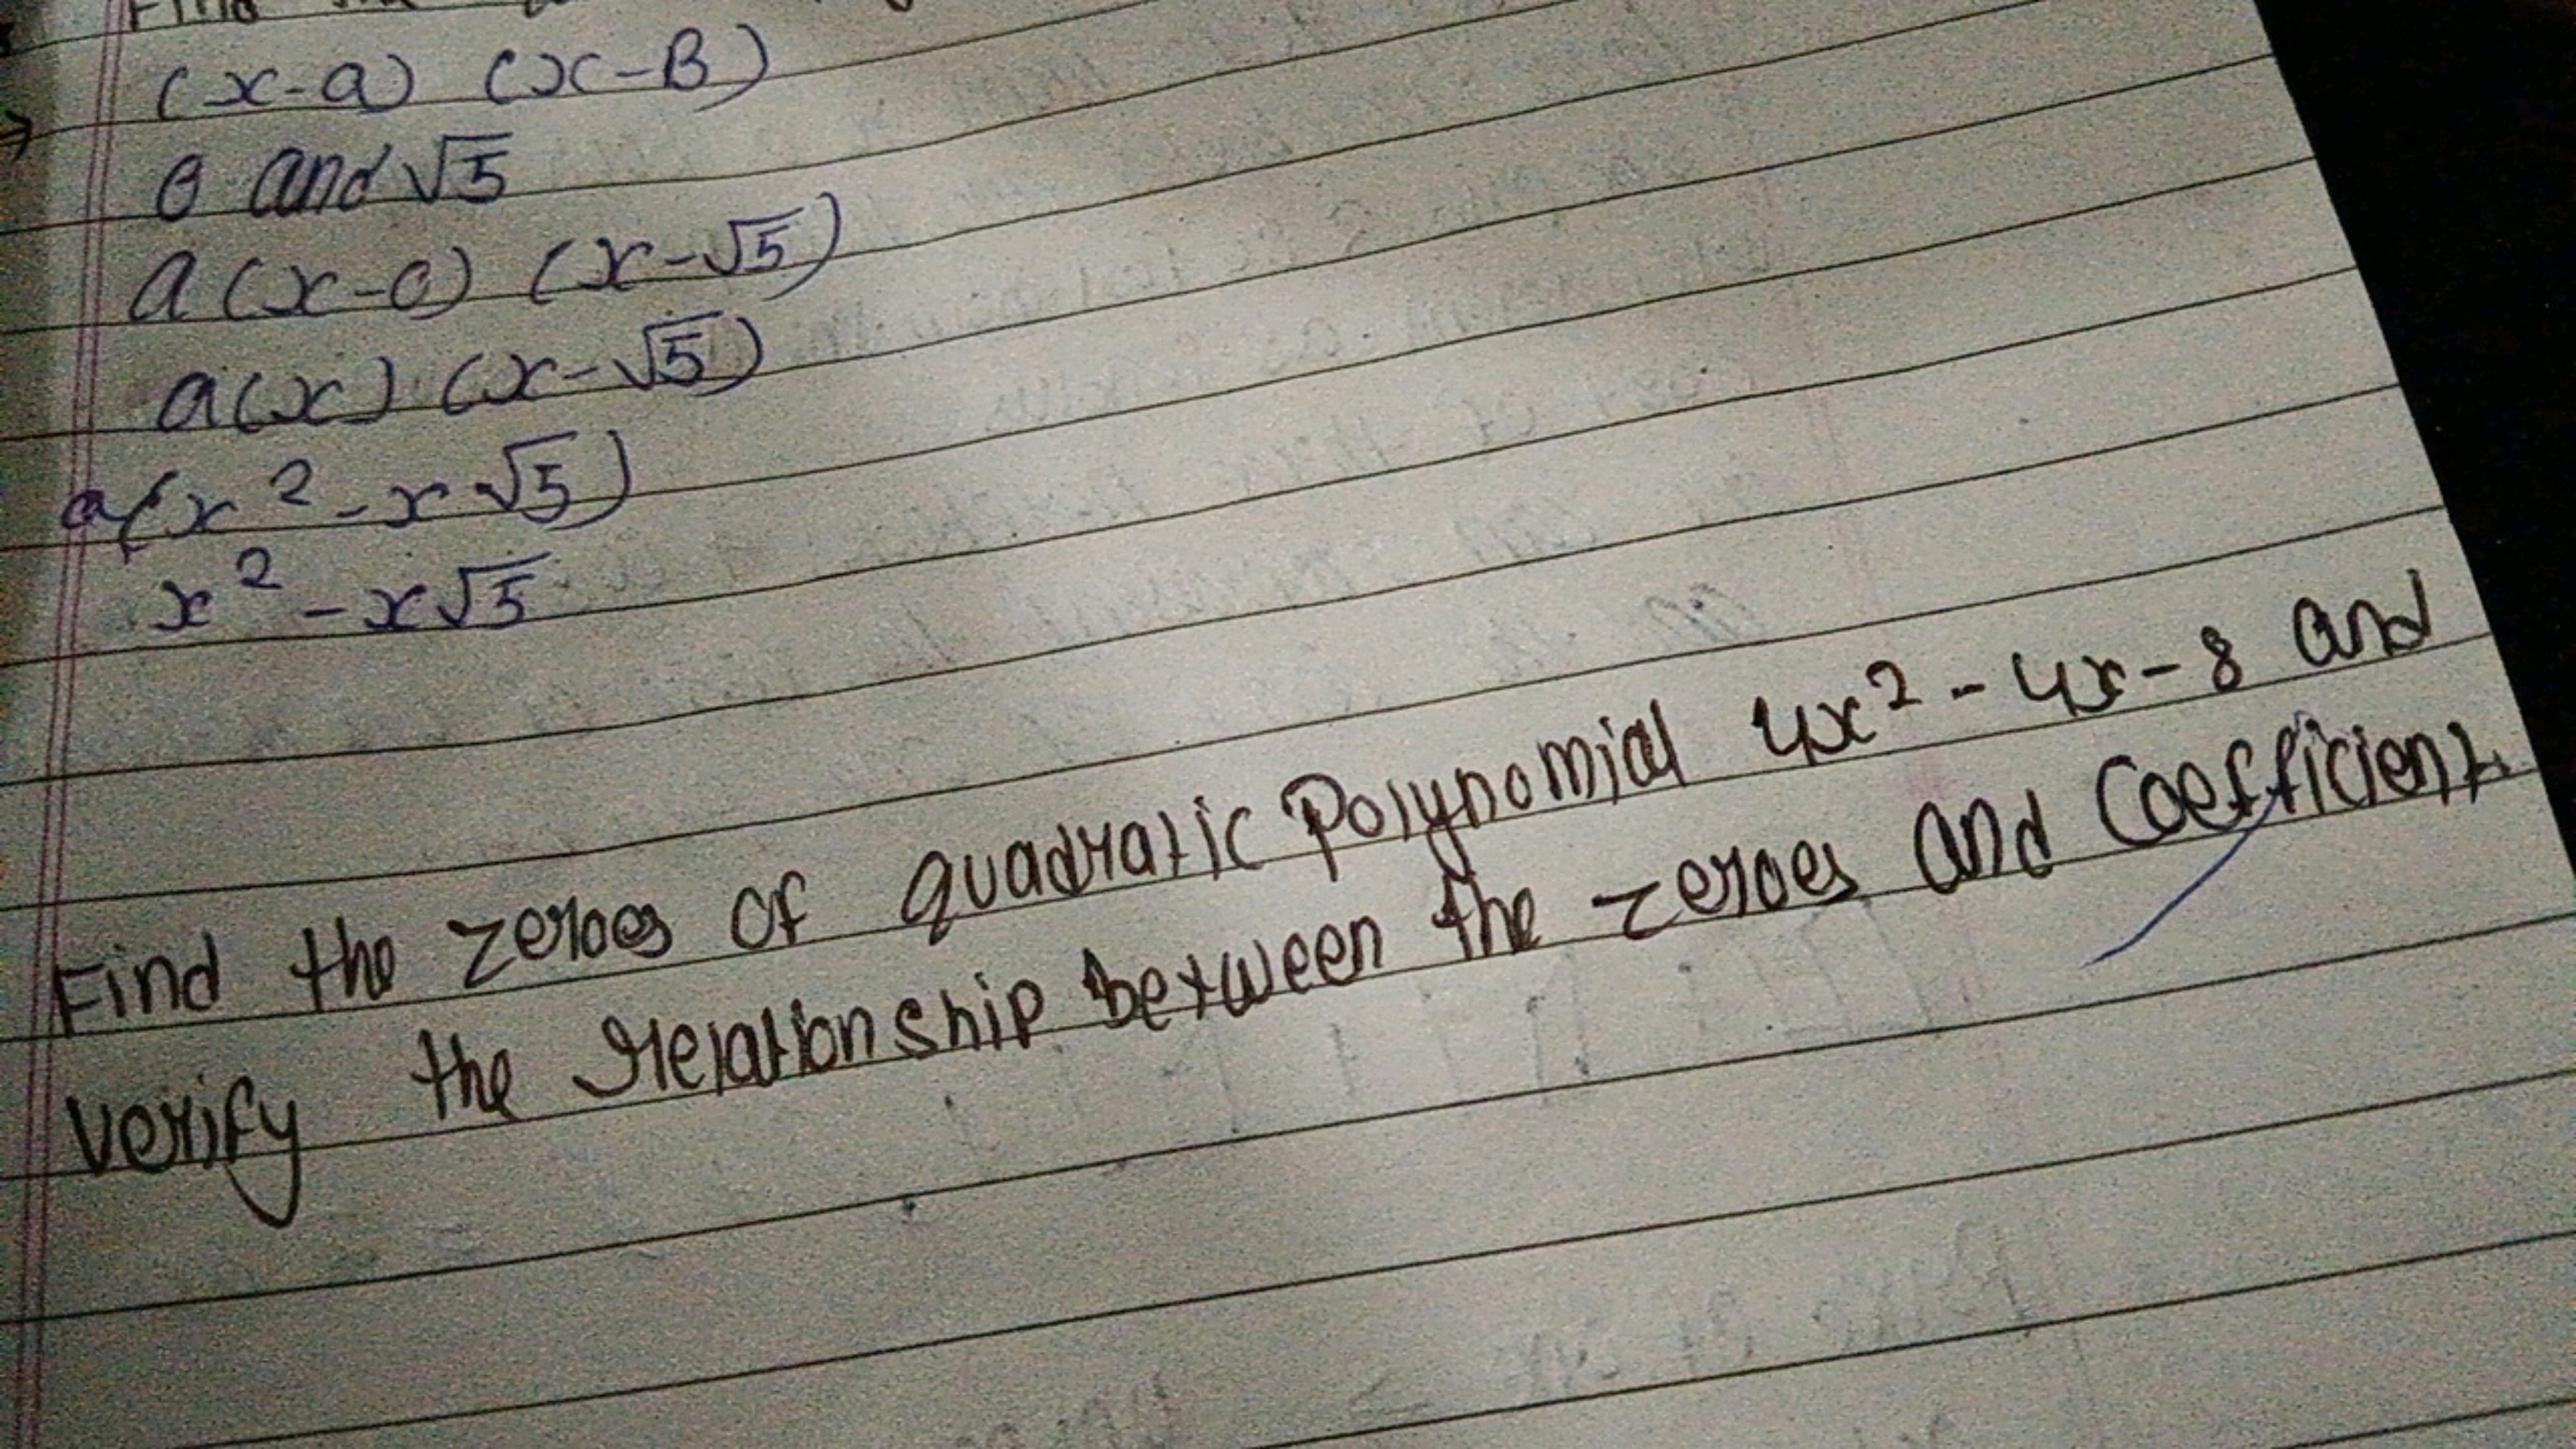 Find the
(x-a) (x-B)
0 and √5
a(x-0) (x-√5)
a(x) (x-√5)
a(x² - x√5)
x² - x√5
Find the zeroes of quadratic Polynomial 4x² - 4x - 8 and
verify the relationship between the zeroes and Coefficient.